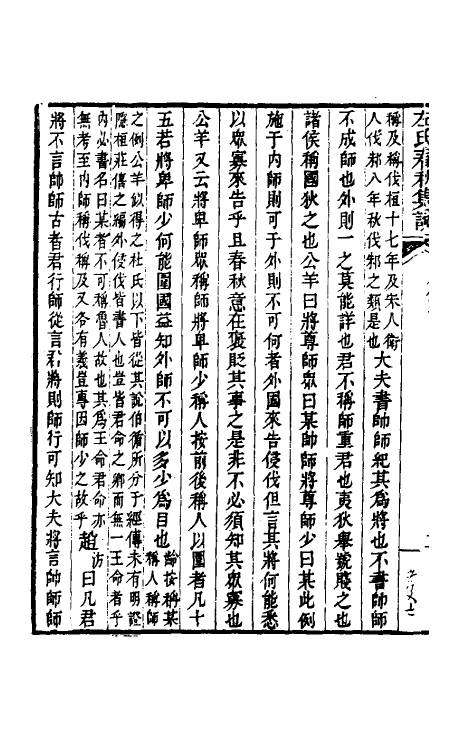 左氏春秋集說
稱及稱伐桓十七年及宋人衛
人伐邾八年秋伐邾之類是也
大夫書帥師紀其為將也不書帥師
不成師也外則一之莫能詳也君不稱師重君也夷狄舉號賤之也
諸侯稱國狄之也公羊曰將尊師眾曰某帥師將尊師少曰某此例
施于内師則可于外則不可何者外國來告侵伐但言其將何能悉
以眾寡來告乎且春秋意在褒貶其事之是非不必須知其眾寡也
公羊又云將卑師眾稱師將卑師少稱人按前後稱人以圍者凡十
五若將卑師少何能圍國益知外師不可以多少為目也
論按稱某
稱人稱師
之例公羊似得之杜氏以下皆從其說伯循所分于經傳未有明證
隱桓莊僖之編外侵伐皆書人也豈皆君命之卿而無一王命者乎
内必書名曰某者不可稱魯人故也其為王命君命亦
無考至内師稱伐稱及又各有義豈專因師少之故乎
趙
汸
曰凡君
將不言帥師古者君行師從言君將則師行可知大夫將言帥師師